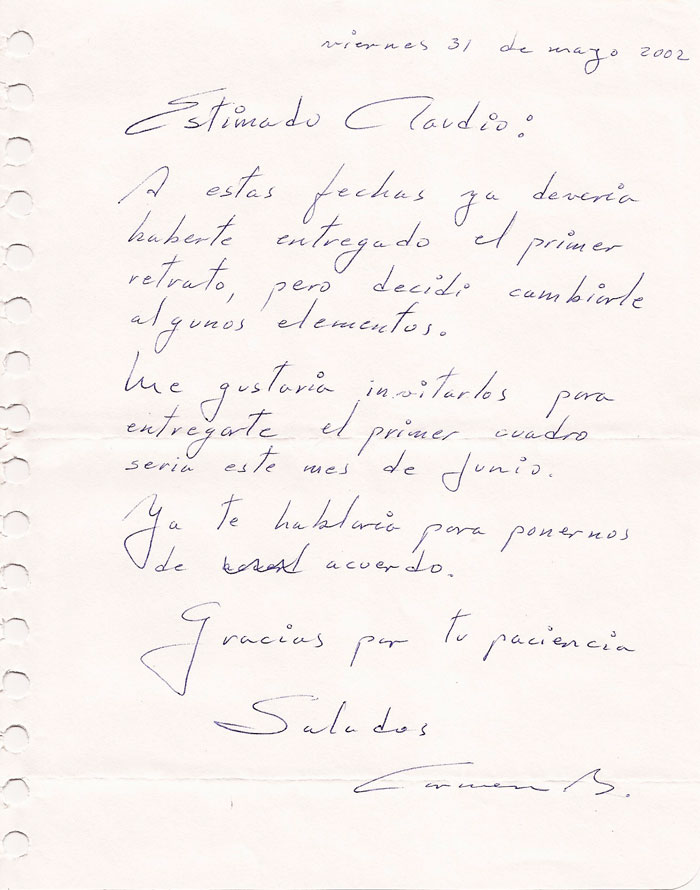 viernes 31 de mayo 2002
Estimado Claudio:
A estas fechas ya deveria
haberte entregado el primer
retrato, pero decidi cambiarle
algunos elementos.
Me gustaria invitarlos para
entregarte el primer cuadro
seria este mes de Junio.
Ya te hablaria para ponernos
de acuerdo.
Gracias por tu paciencia
Saludos
Carmen B.